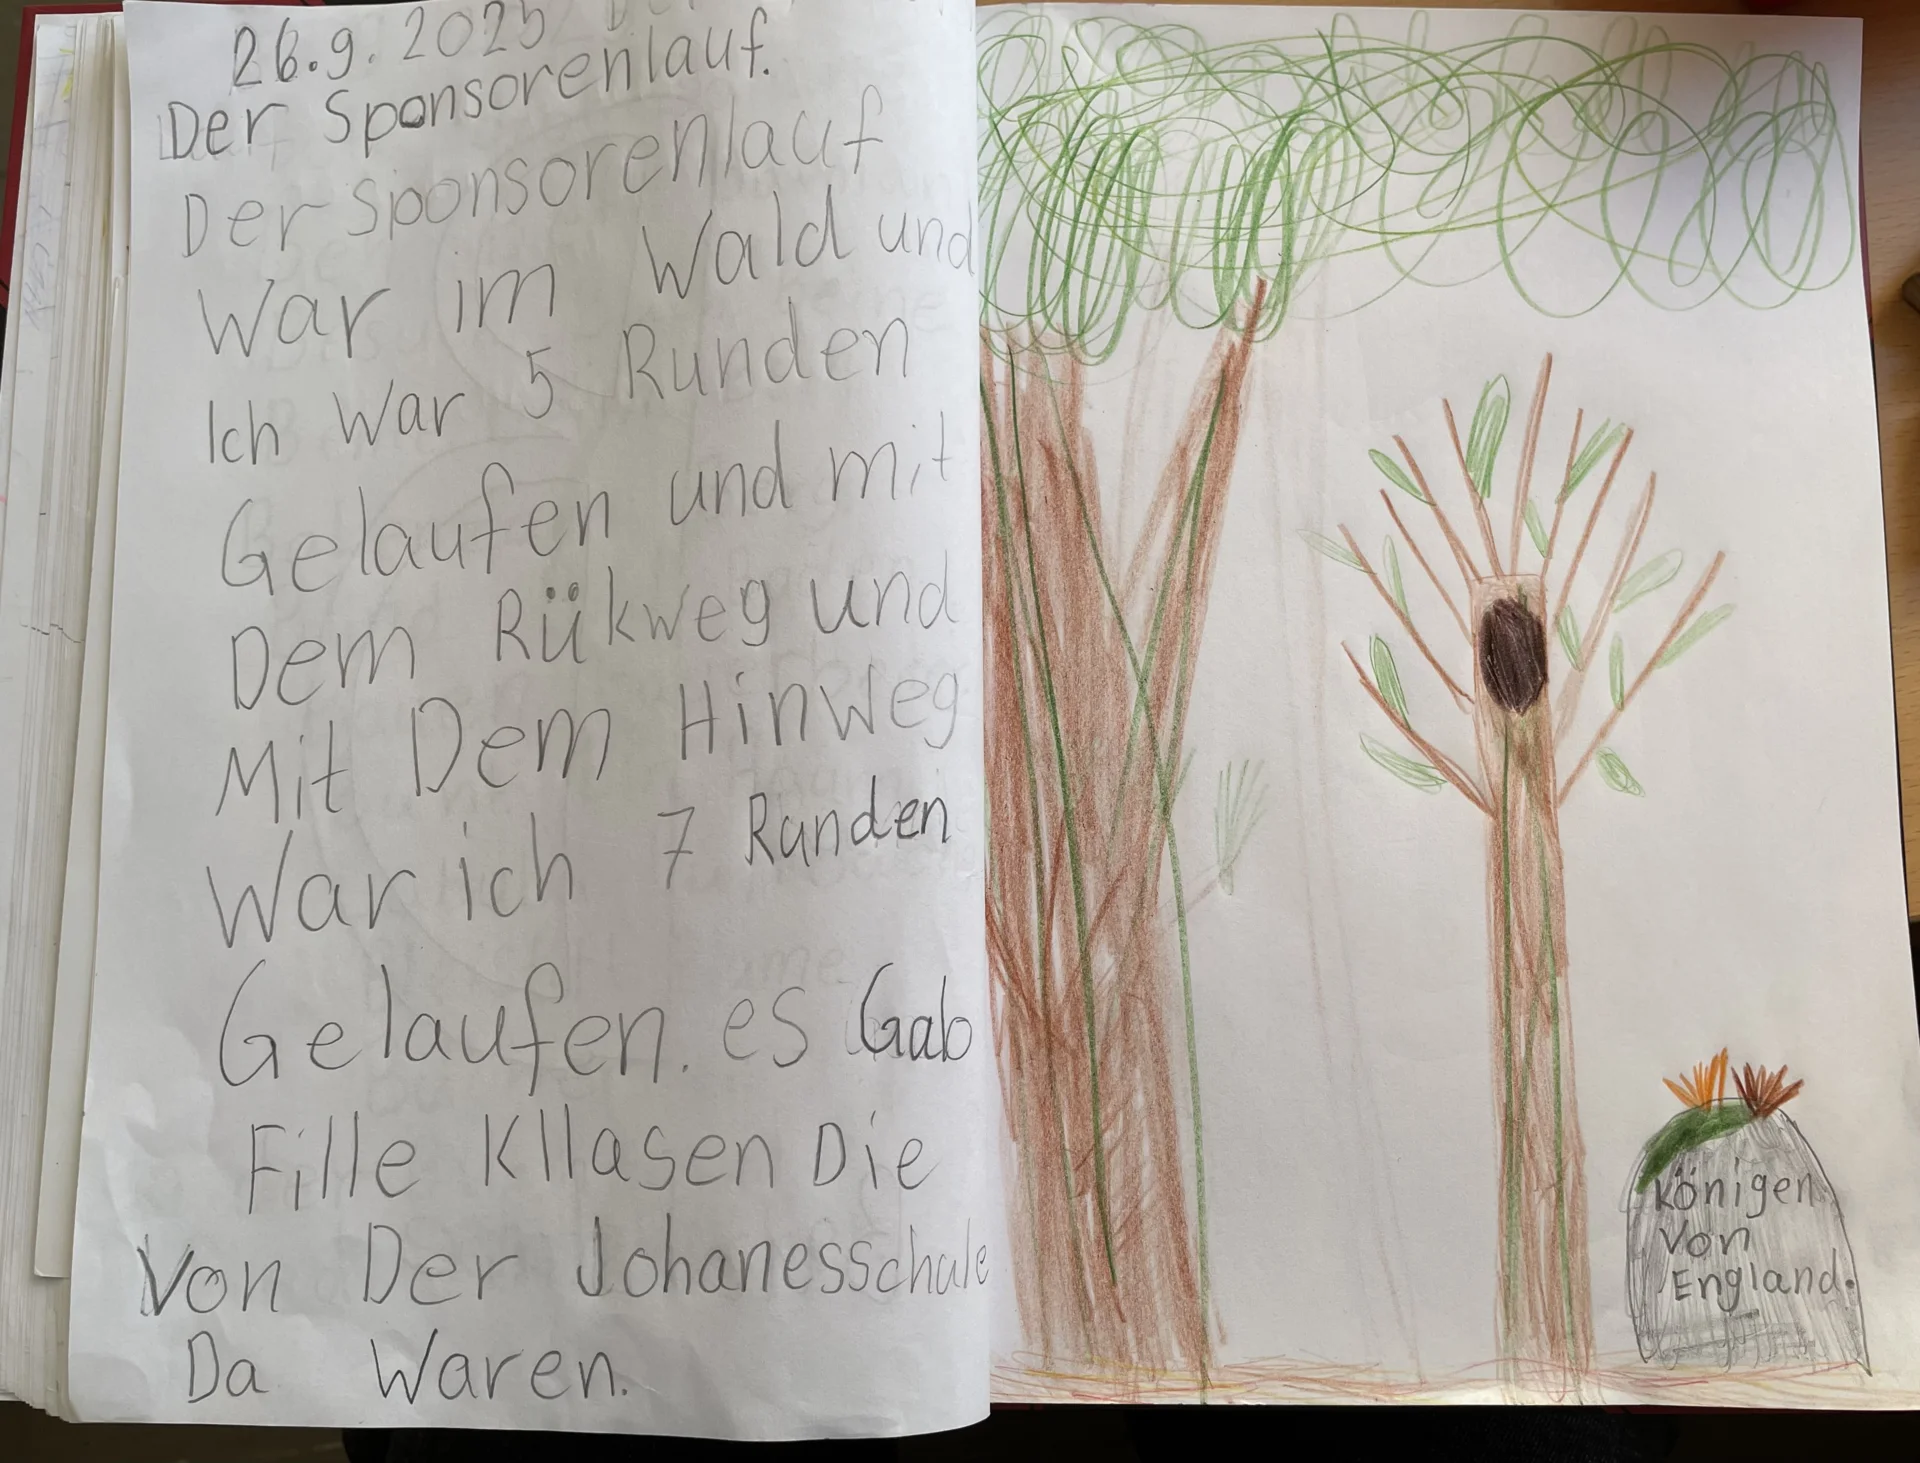 26.9.2025
Der Sponsorenlauf.
Der Sponsorenlauf
War im Wald und
Ich War 5 Runden
Gelaufen und mit
Dem Rükweg und
Mit Dem Hinweg
War ich 7 Runden
Gelaufen. es Gab
Fille Kllasen Die
Von Der Johanesschule
Da Waren.
Königen
Von
England.